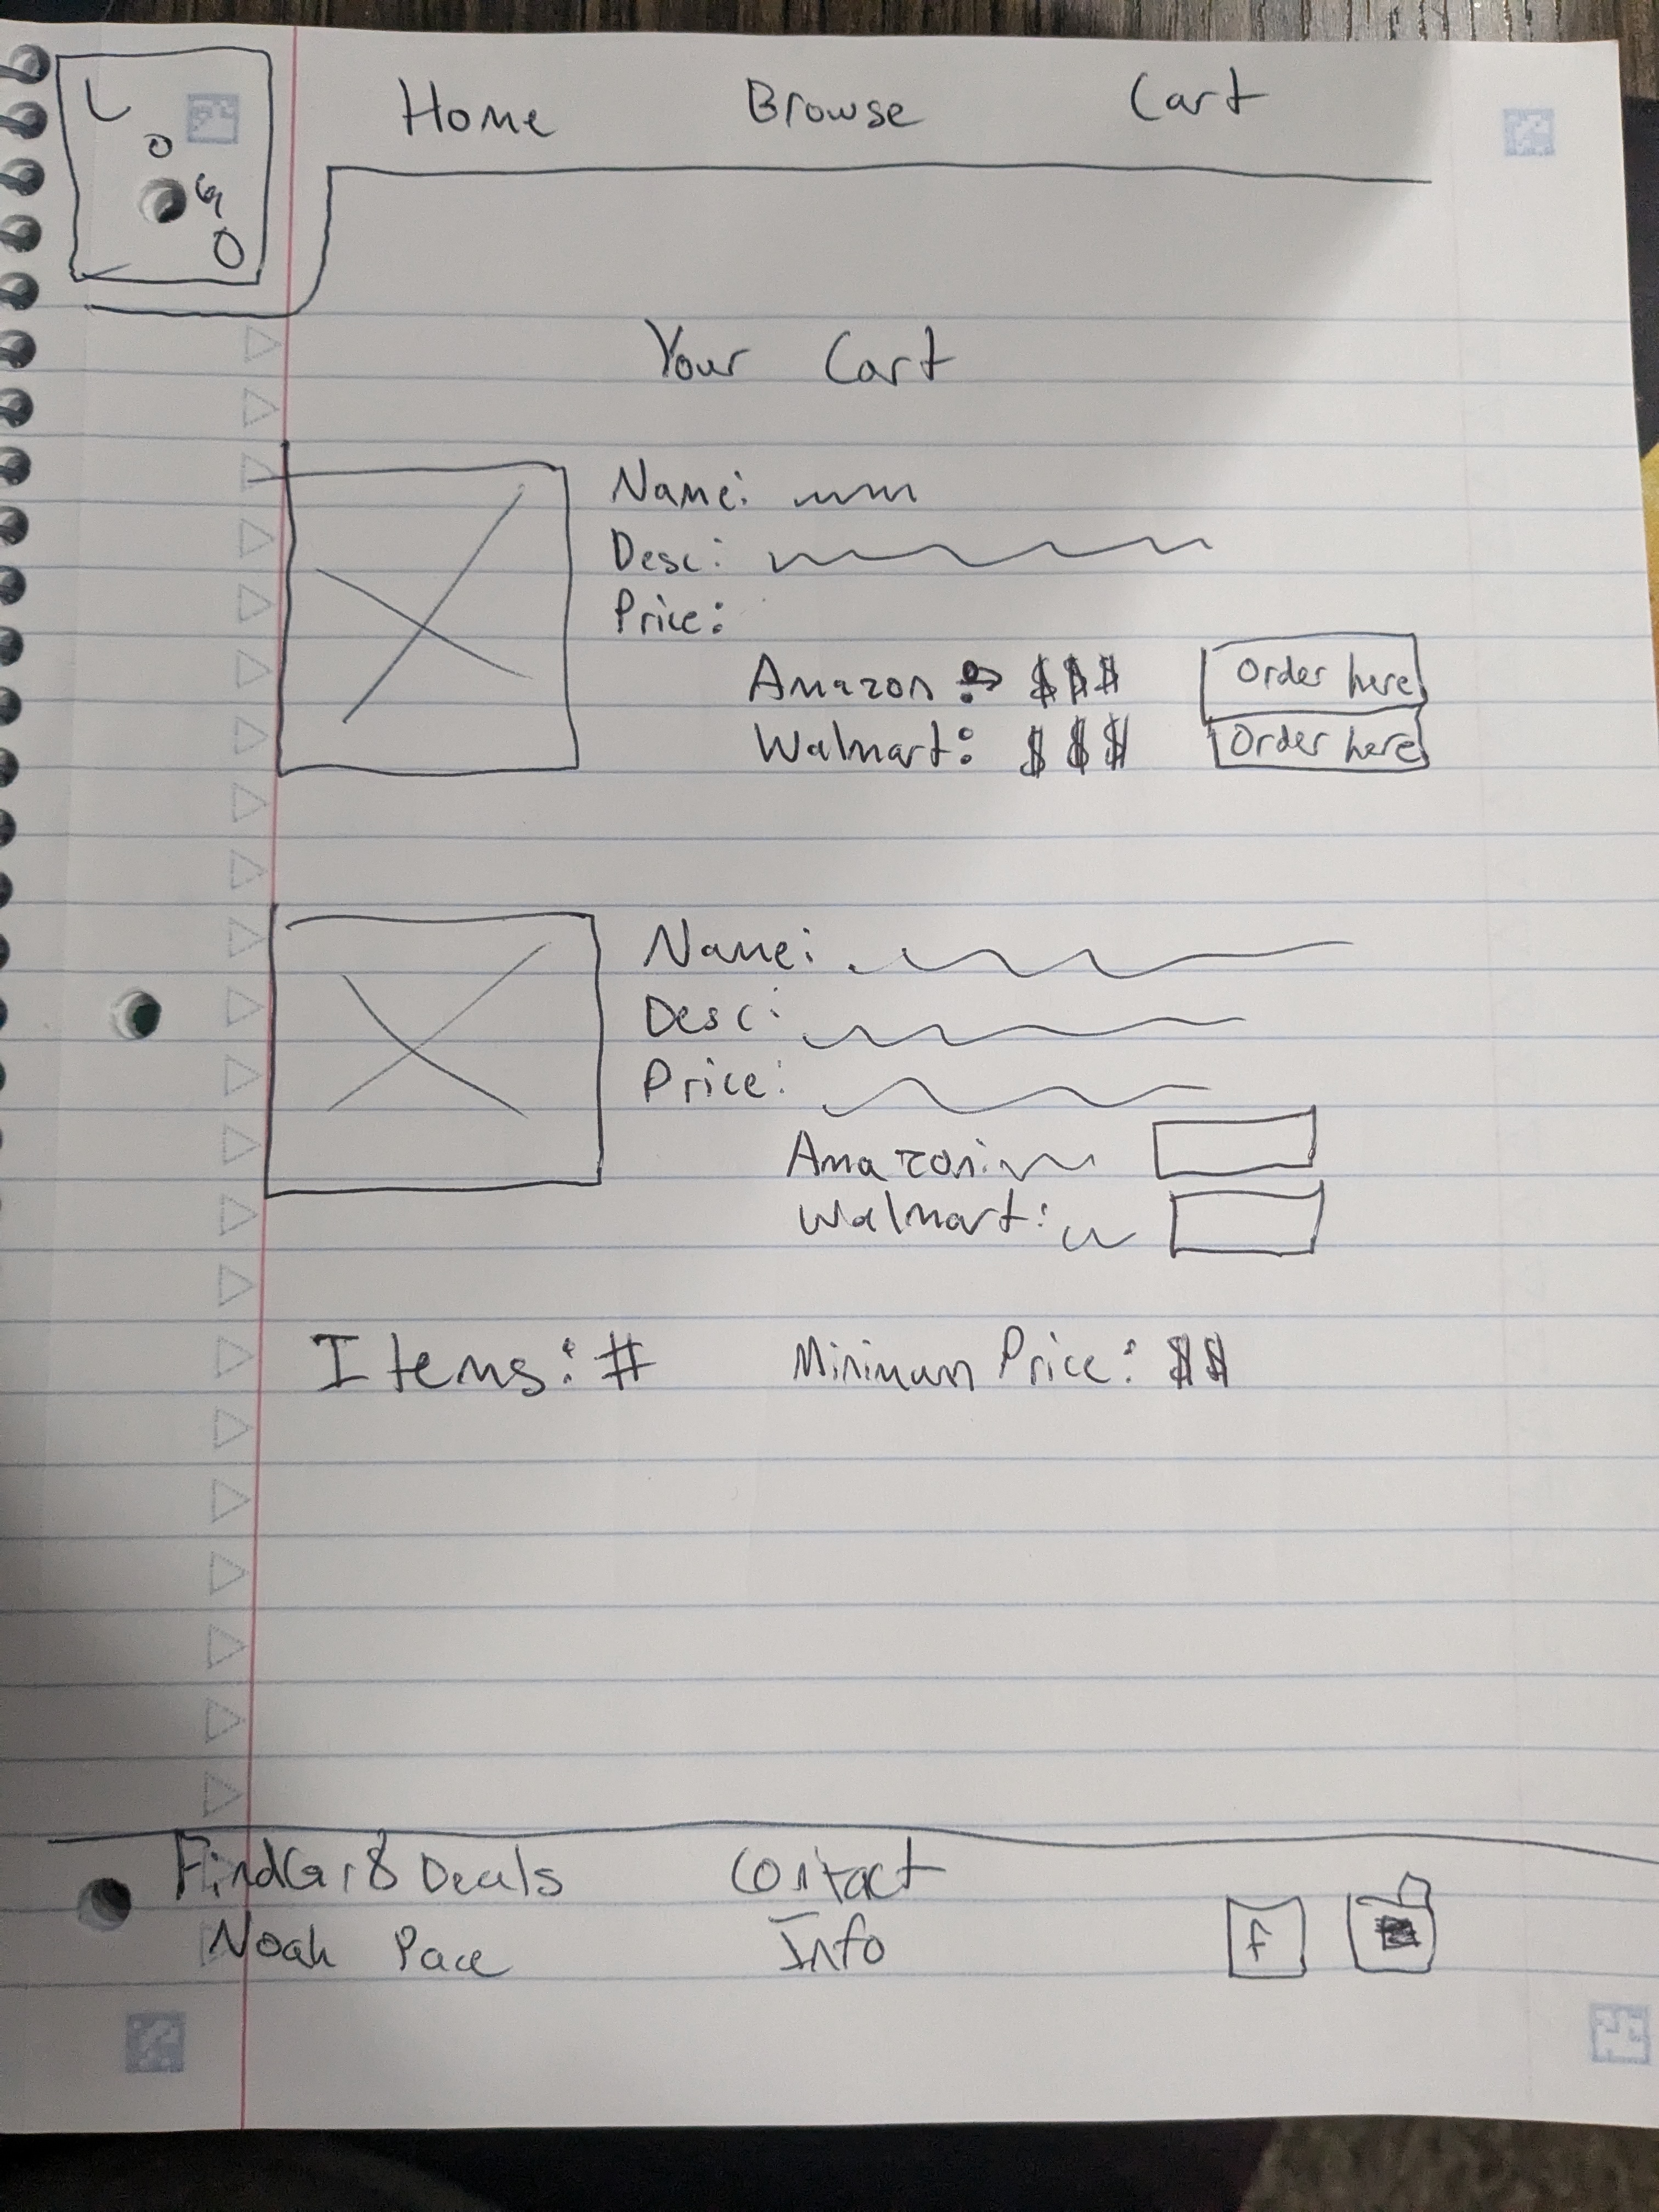 LOGO
Home Browse Cart
Your Cart
Name:
Desc:
Price:
Amazon: $$$ Order here
Walmart: $$$ Order here
Name:
Desc:
Price:
Amazon:
Walmart:
Items: # Minimum Price: $$
FindGr8Deals Contact
Noah Pace Info
f